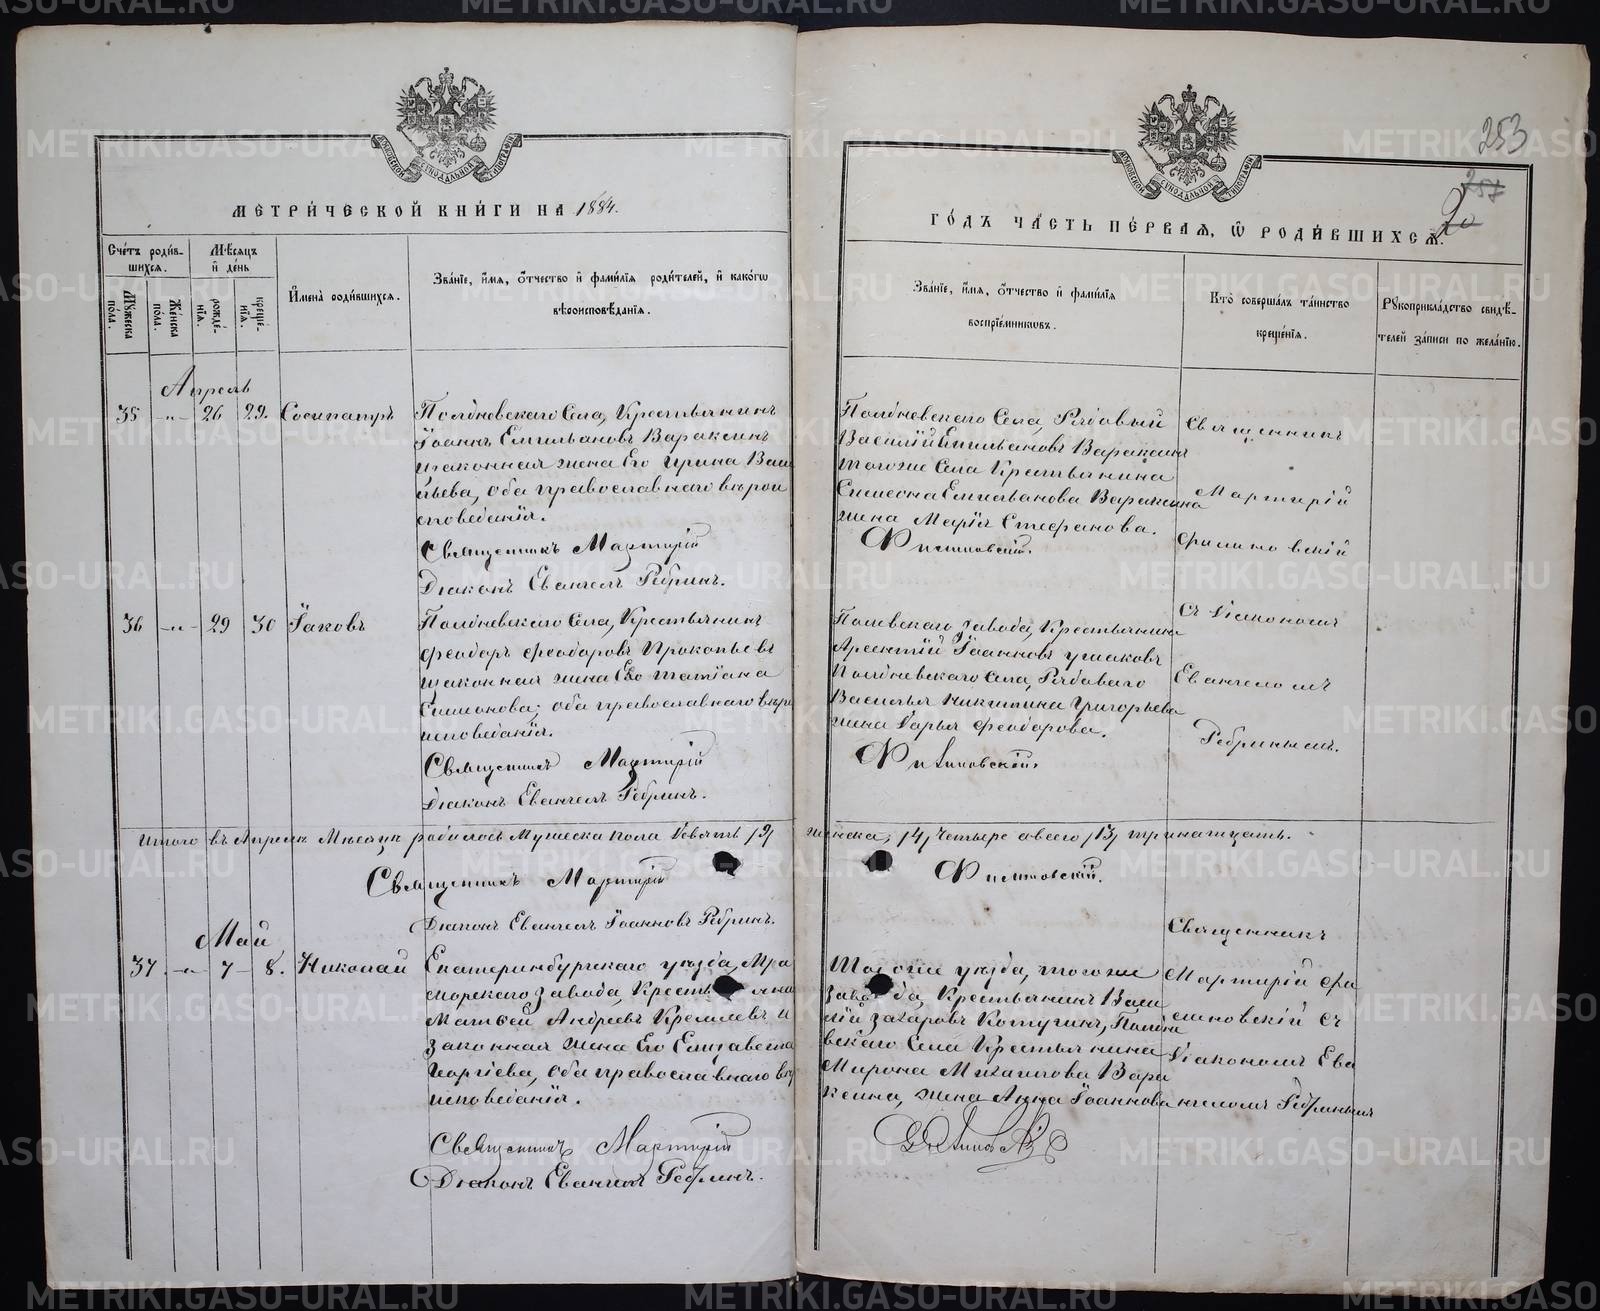 МЕТРИЧЕСКОЙ КНИГИ НА 1884.
ГОДЪ ЧАСТЬ ПЕРВАЯ, Ѿ РОДИВШИХСЯ.
253
Счетъ родив-
шихся.
Мѣсяцъ
и день
Мужеска
пола.
Женска
пола.
рожде-
нія.
креще-
нія.
Имена родившихся.
Званіе, имя, отчество и фамилія родителей, и какогѡ
вѣроисповѣданія.
Званіе, имя, отчество и фамилія
воспріемниковъ.
Кто совершалъ таинство
крещенія.
Рукоприкладство свидѣ-
телей записи по желанію.
Апрель
35 -"- 26 29. Сосипатръ
Полдневскаго Села, Крестьянинъ
Іоаннъ Емильановъ Вараксинъ
и законная жена Его Ирина Васи
льева, оба православнаго вѣрои
споведанія.
Священникъ Мартирій
Діаконъ Евангелъ Ребринъ.
Полдневскаго Села, Рядовый
Василій Емильановъ Вараксинъ
тогоже Села Крестьянина
Симеона Емильанова Вараксина
жена Марія Стефанова.
Филиповскій.
Священникъ
Мартирій
Филиповскій
съ Діакономъ
Евангеломъ
Ребринымъ.
36 -"- 29 30 Іаковъ
Полдневскаго Села, Крестьянинъ
Феодоръ Феодоровъ Прокопьевъ
и законная жена Его Татіана
Симонова; оба православнаго вѣро
исповеданія.
Священникъ Мартирій
Діаконъ Евангелъ Ребринъ.
Полевскаго завода, Крестьянинъ
Арсентій Іоанновъ Ушаковъ
Полдневскаго Села, Рядоваго
Василья Никитина Григорьева
жена Дарья Феодорова.
Филиповскій.
Итого въ Апреле Месяце родилось Мужеска пола девять /9/ женска, /4/ четыре а всего /13/ тринатцать.
Священникъ Мартирій Филиповскій.
Діаконъ Евангелъ Іоанновъ Ребринъ.
Май
37 -"- 7 - 8. Николай
Екатеринбургскаго уезда, Мра
морскаго завода, Крестьянинъ
Матвей Андреевъ Кремлевъ и
законная жена Его Елизавета
Георгіева, оба православнаго веро
исповеданія.
Священникъ Мартирій
Діаконъ Евангелъ Ребринъ.
Тогоже уезда, тогоже
завода, Крестьянинъ Васи
лій Захаровъ Котугинъ, Полдне
вскаго Села Крестьянина
Мирона Михаилова Вара
ксина, жена Анна Іоаннова
Филиповскій
Священникъ
Мартирій Фи
липовскій съ
Діакономъ Ева
нгеломъ Ребринымъ